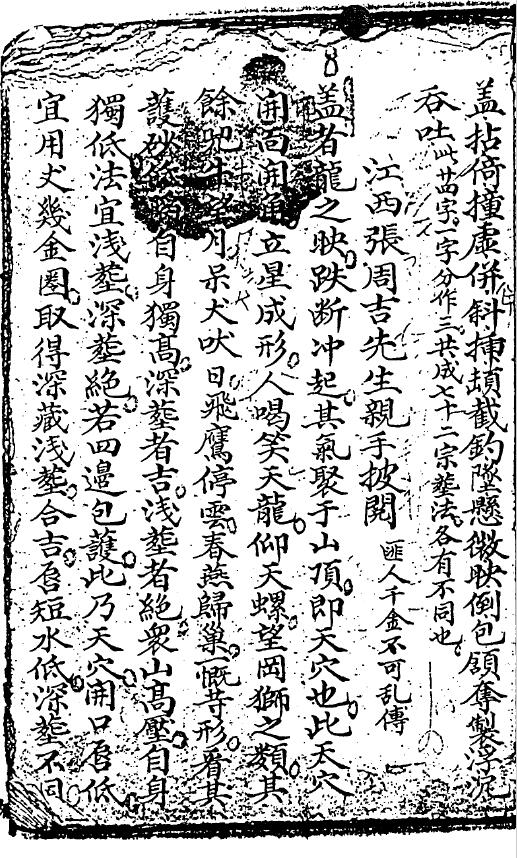 盖拈倚撞虛併斜插頭截釣墜懸微映倒包領奪製浮泥
吞吐此廿四字一字分作三共成七十二宗塟法各有不同也
江西張周吉先生親手披閱 匪人千金不可乱傳
盖者龍之映跌断冲起其氣聚于山頂即天穴也此天穴
開面開角立星成形人喝笑天龍仰天螺望岡獅之類其
餘吼牛望月呆犬吠日飛鷹停雲春燕歸巢一慨䓁形看其
護砂自身獨髙深塟者吉浅塟者絶衆山髙壓自身
獨低法宜浅塟深塟絶若四邉包護此乃天穴開口唇低
宜用犬幾金圏取得深藏浅塟合吉唇短水低深塟不同